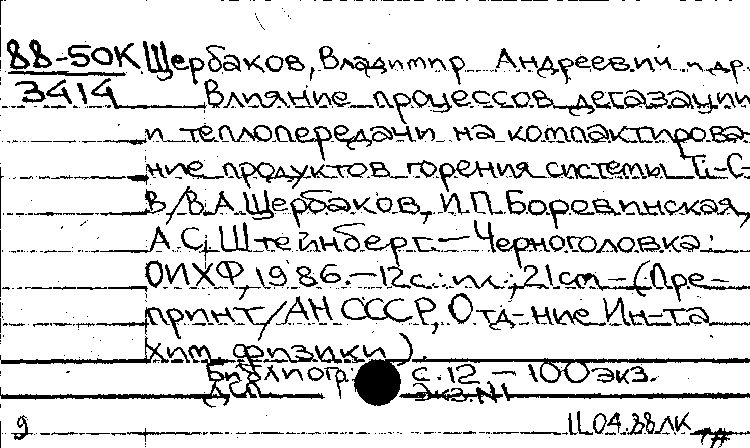 88-50К Щербаков, Владимир Андреевич и др.
3414 Влияние процессов дегазации
и теплопередачи на компактирова-
ние продуктов горения системы Ti-C-
B/В.А.Щербаков, И.П.Боровинская,
А.С.Штейнберг.—Черноголовка:
ОИХФ, 1986.—12с.:ил.; 21см—(Пре-
принт/АН СССР, Отд-ние Ин-та
хим. физики).
Библиогр.: с.12 — 100экз.
ДСП экз.N1
9 11.04.88 ЛК